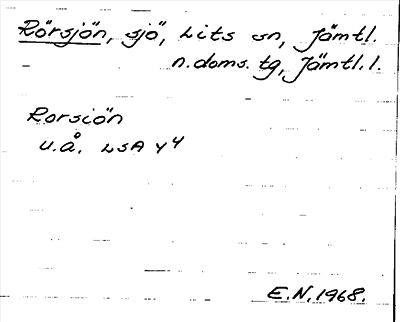 Rörsjön, sjö, Lits sn, Jämtl.
n. doms. tg, Jämtl. l.
Rorsiön
u.å. LSA Y 4
E.N. 1968.